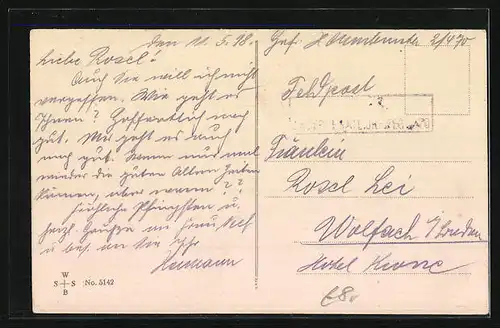 den 11. 5. 18.
Liebe Rosel!
Auch Sie will ich nicht
vergessen. Wie geht es
Ihnen? Hoffentlich noch
gut. Mir geht es auch
noch gut. Wenn nur mal
wieder die guten Alten Zeiten
kämen, aber wann??
Fröhliche Pfingsten u.
herzl. Grüße an Frau
u. bes. an Sie Ihr
Hermann
W
S S No. 5142
B
Gefr.
Feldpost
Fräulein
Rosel Lei
Wolfach i/Baden
Hotel Krone